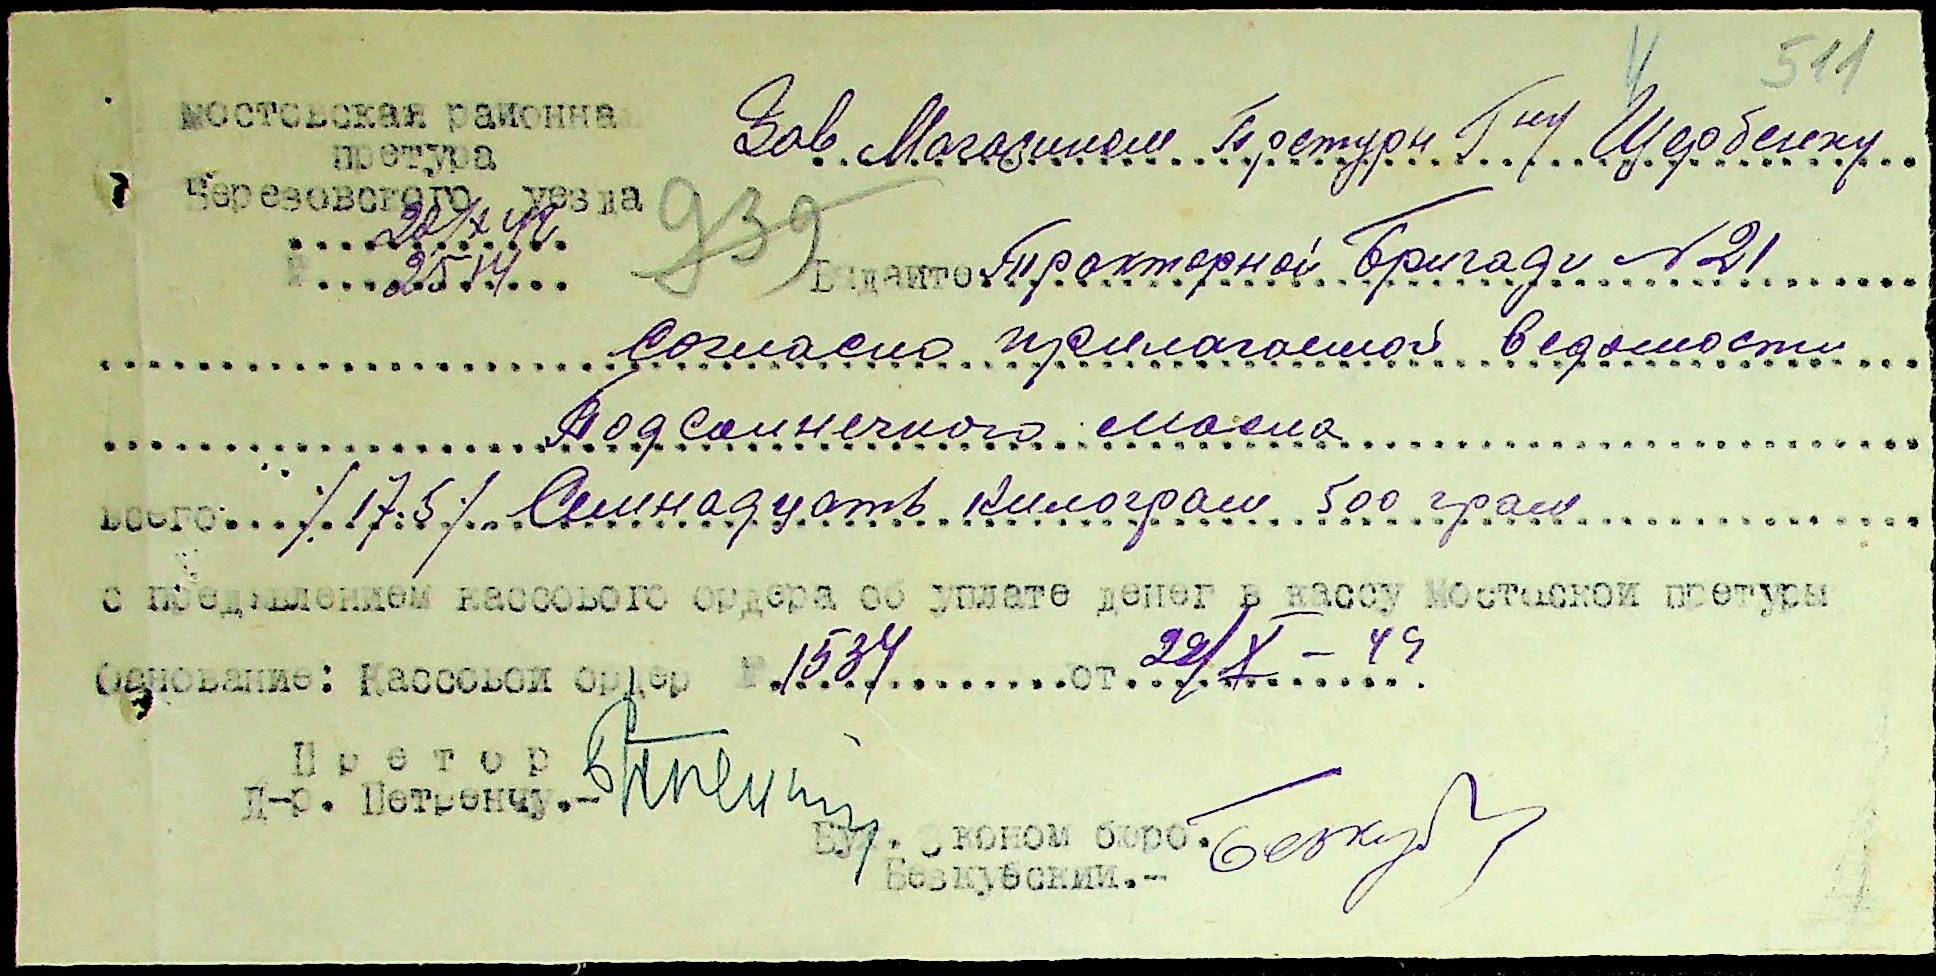 511
Мостовская районная
претура
Березовского уезда
Зав. Магазином Претуры Гну Щербенку
22/X 42
№ 2514
939
Выдайте Тракторной Бригади №21
согласно прилагаемой ведомости
Подсолнечного масла
всего /17.5/ Семнадцать килограм 500 грам
с предявлением кассового ордера об уплате денег в кассу Мостовской претуры
Основание: Кассовой ордер № 1534 от 22/X - 42
Претор
Д-р. Петренчу.-
Бух. Эконом бюро.
Безкубский.-